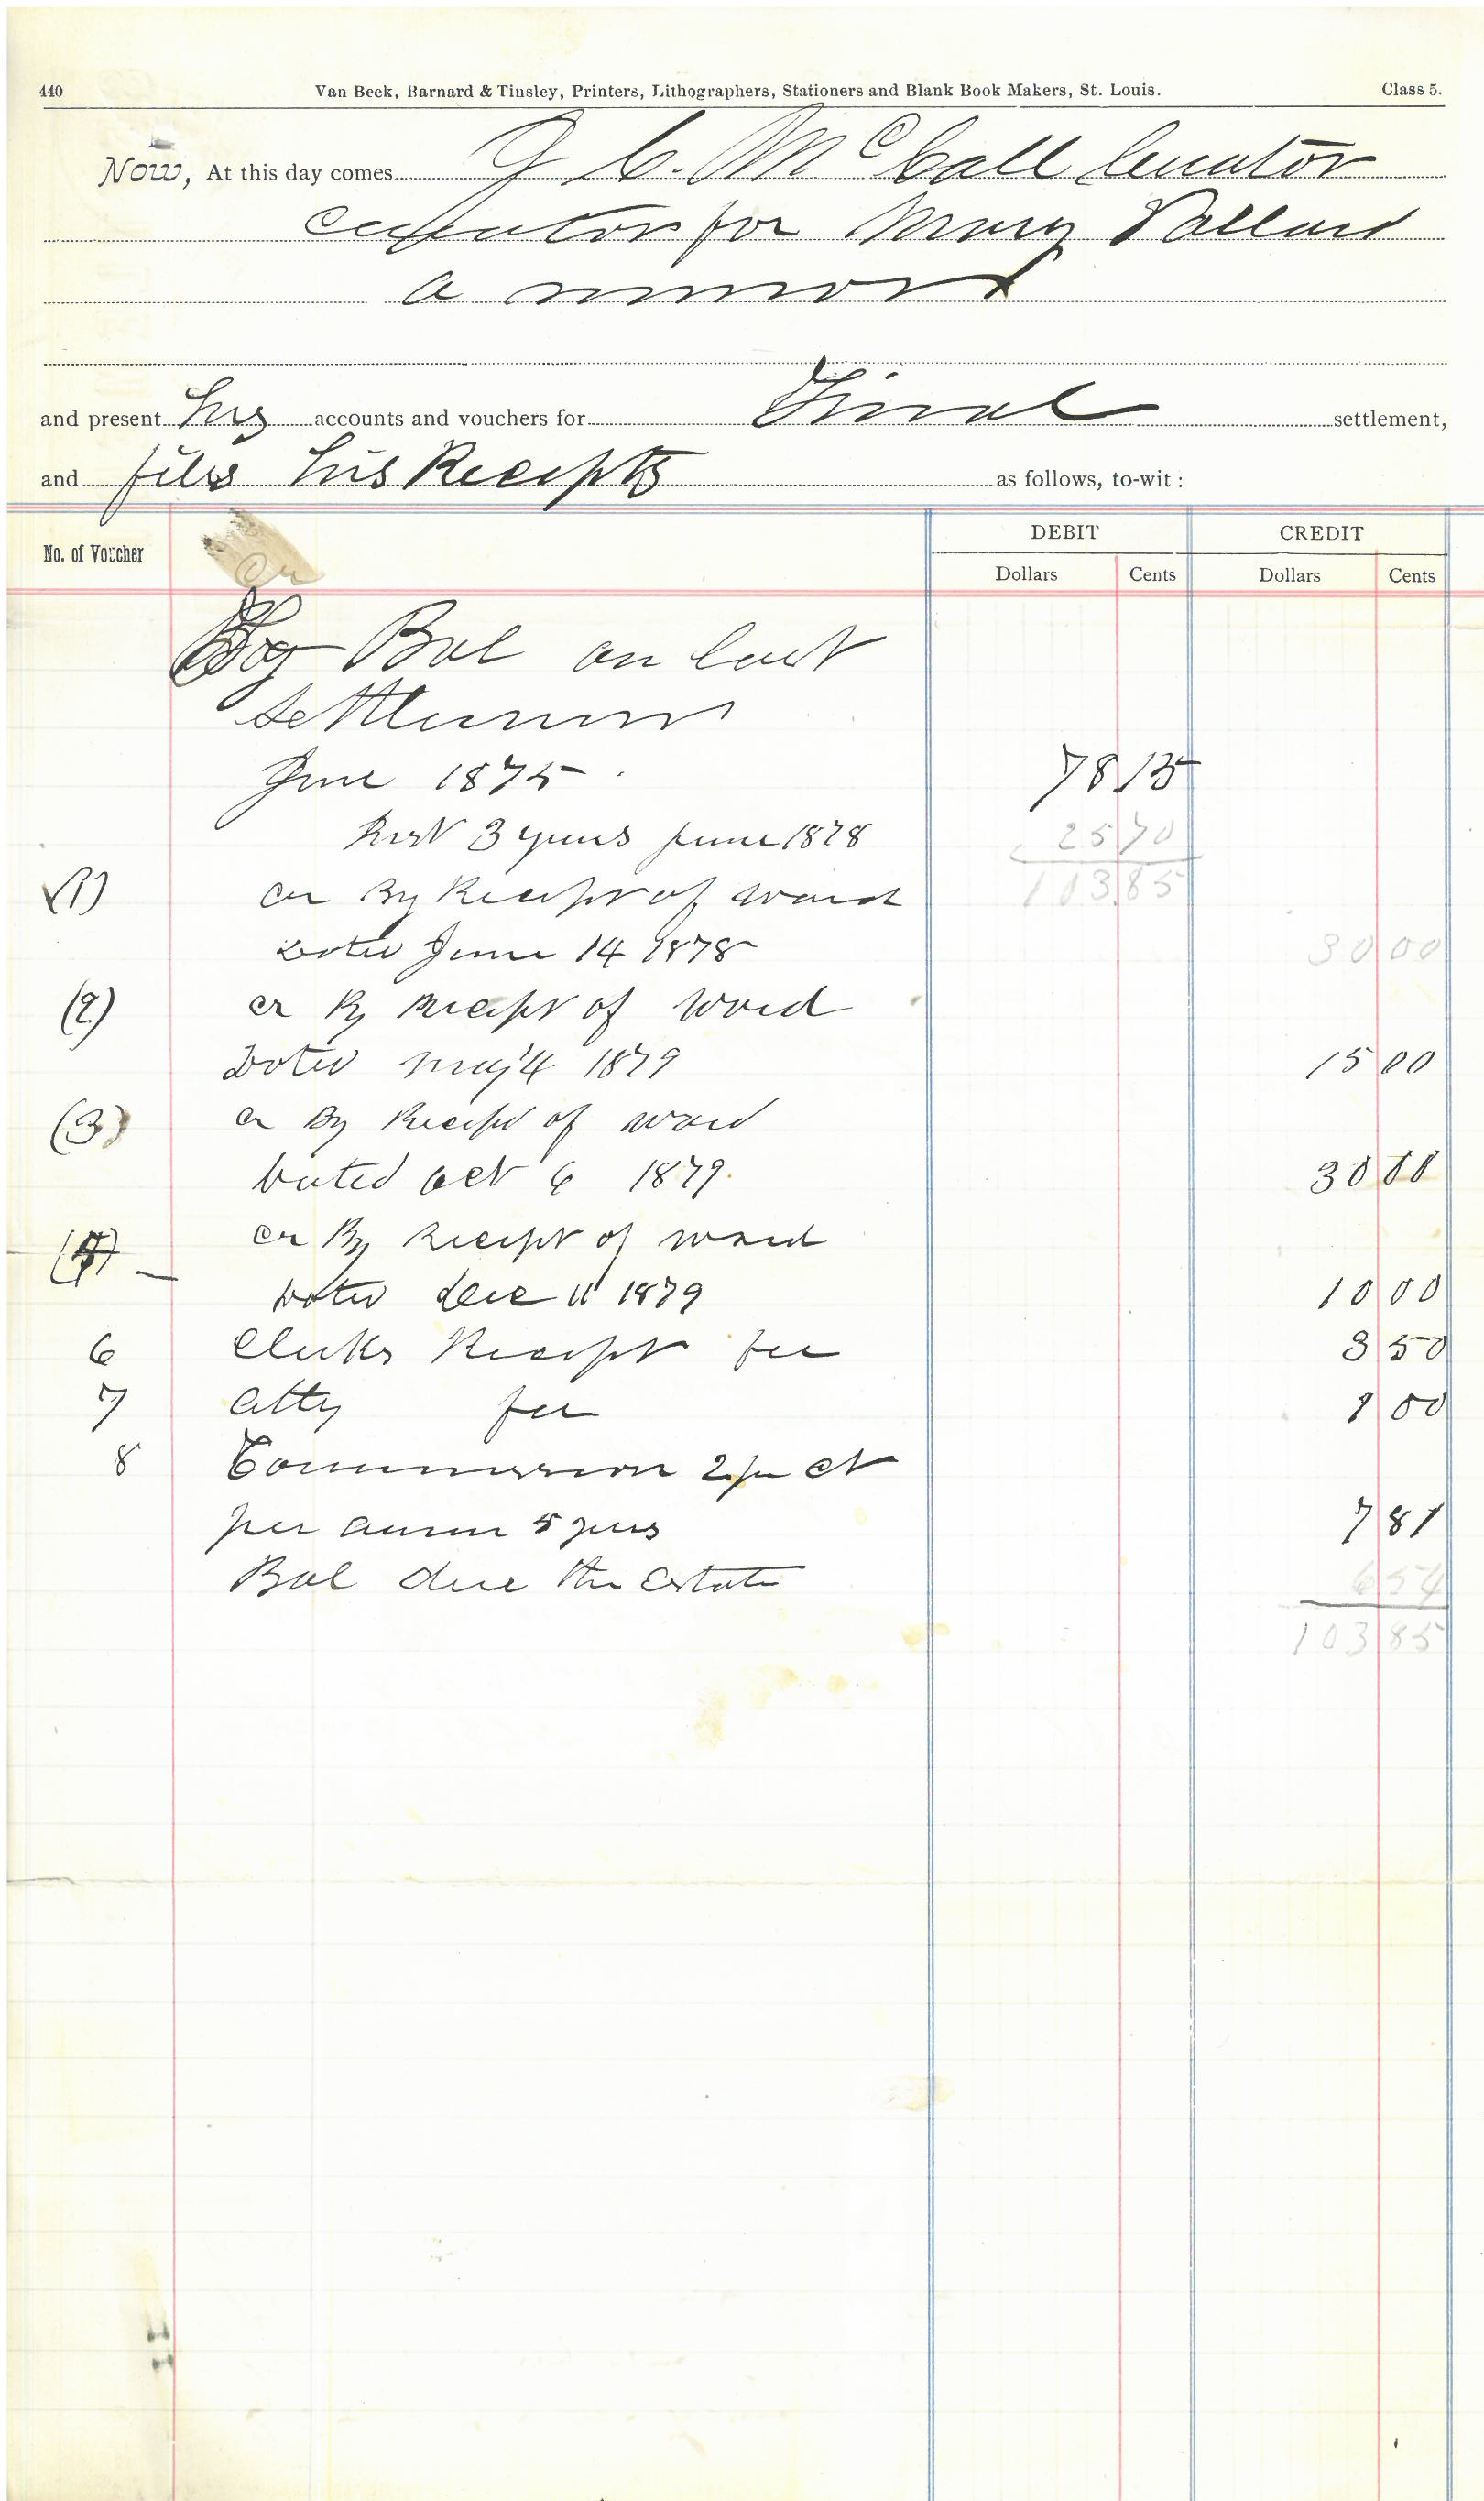 440 Van Beek, Barnard & Tinsley, Printers, Lithographers, Stationers and Blank Book Makers, St. Louis. Class 5.
Now, At this day comes J C. McCall Curator
curator for Mary Pollard
a minor
and present his accounts and vouchers for Final settlement,
and files his Receipts as follows, to-wit:
DEBIT CREDIT
No. of Voucher Dollars Cents Dollars Cents
cr
To Bal on last
settlement
June 1875 78 15
3 years June 1878 25 70
103 85
(1) cr By Receipt of ward
Dated June 14 1878 30 00
(2) cr By Receipt of Ward
Dated May 4 1879 15 00
(3) cr By Receipt of ward
Dated Oct 6 1879. 30 00
cr By Receipt of ward
Dated Dec 11 1879 10 00
6 Clerks Receipt fee 3 50
7 Atty fee 1 00
8 Commission 2 per ct
per annum 5 years 7 81
Bal due the Estate 6 54
103 85